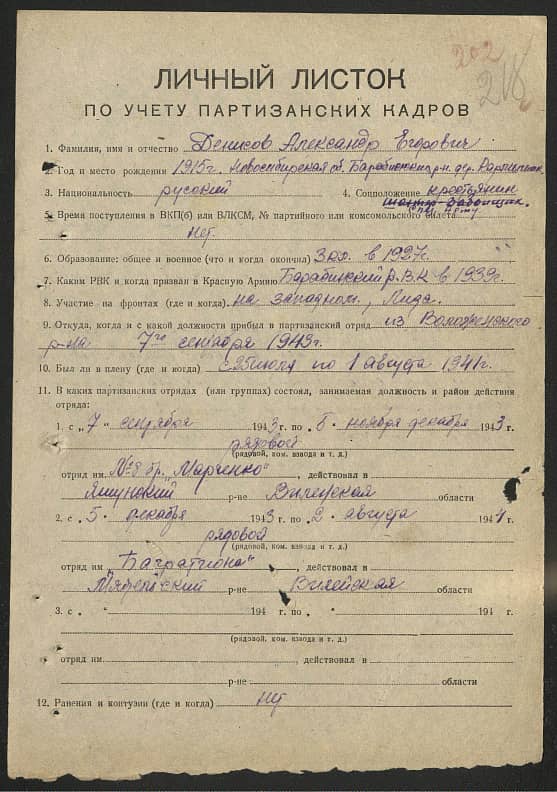 202
218
ЛИЧНЫЙ ЛИСТОК
ПО УЧЕТУ ПАРТИЗАНСКИХ КАДРОВ
1. Фамилия, имя и отчество Денисов Александр Егорович
2. Год и место рождения 1915г. Новосибирская об. Барабинский рн. дер.
3. Национальность русский 4. Соцположение крестьянин
5. Время поступления в ВКП(б) или ВЛКСМ, № партийного или комсомольского билета
Нет.
6. Образование: общее и военное (что и когда окончил) 3 кл. в 1927г.
7. Каким РВК и когда призван в Красную Армию Барабинский Р.В.К в 1939г.
8. Участие на фронтах (где и когда) на западном, Лида.
9. Откуда, когда и с какой должности прибыл в партизанский отряд из
р-на 7го сентября 1943г.
10. Был ли в плену (где и когда) с 25 июля по 1 августа 1941г.
11. В каких партизанских отрядах (или группах) состоял, занимаемая должность и район действия
отряда:
1. с „7“ сентября 1943 г. по „5 ноября декабря 1943 г.
рядовой
(рядовой, ком. взвода и т. д.)
отряд им. №8 бр. „Марченко“, действовал в
Яшунский р-не Виленская области
2. с „5 декабря 1943 г. по „2 августа 1944 г.
рядовой
(рядовой, ком. взвода и т. д.)
отряд им „Багратиона“, действовал в
Мядельский р-не Вилейская области
3. с „ 194 г. по „ 194 г.
(рядовой, ком. взвода и т. д.)
отряд им. , действовал в
р-не области
12. Ранения и контузии (где и когда) нет